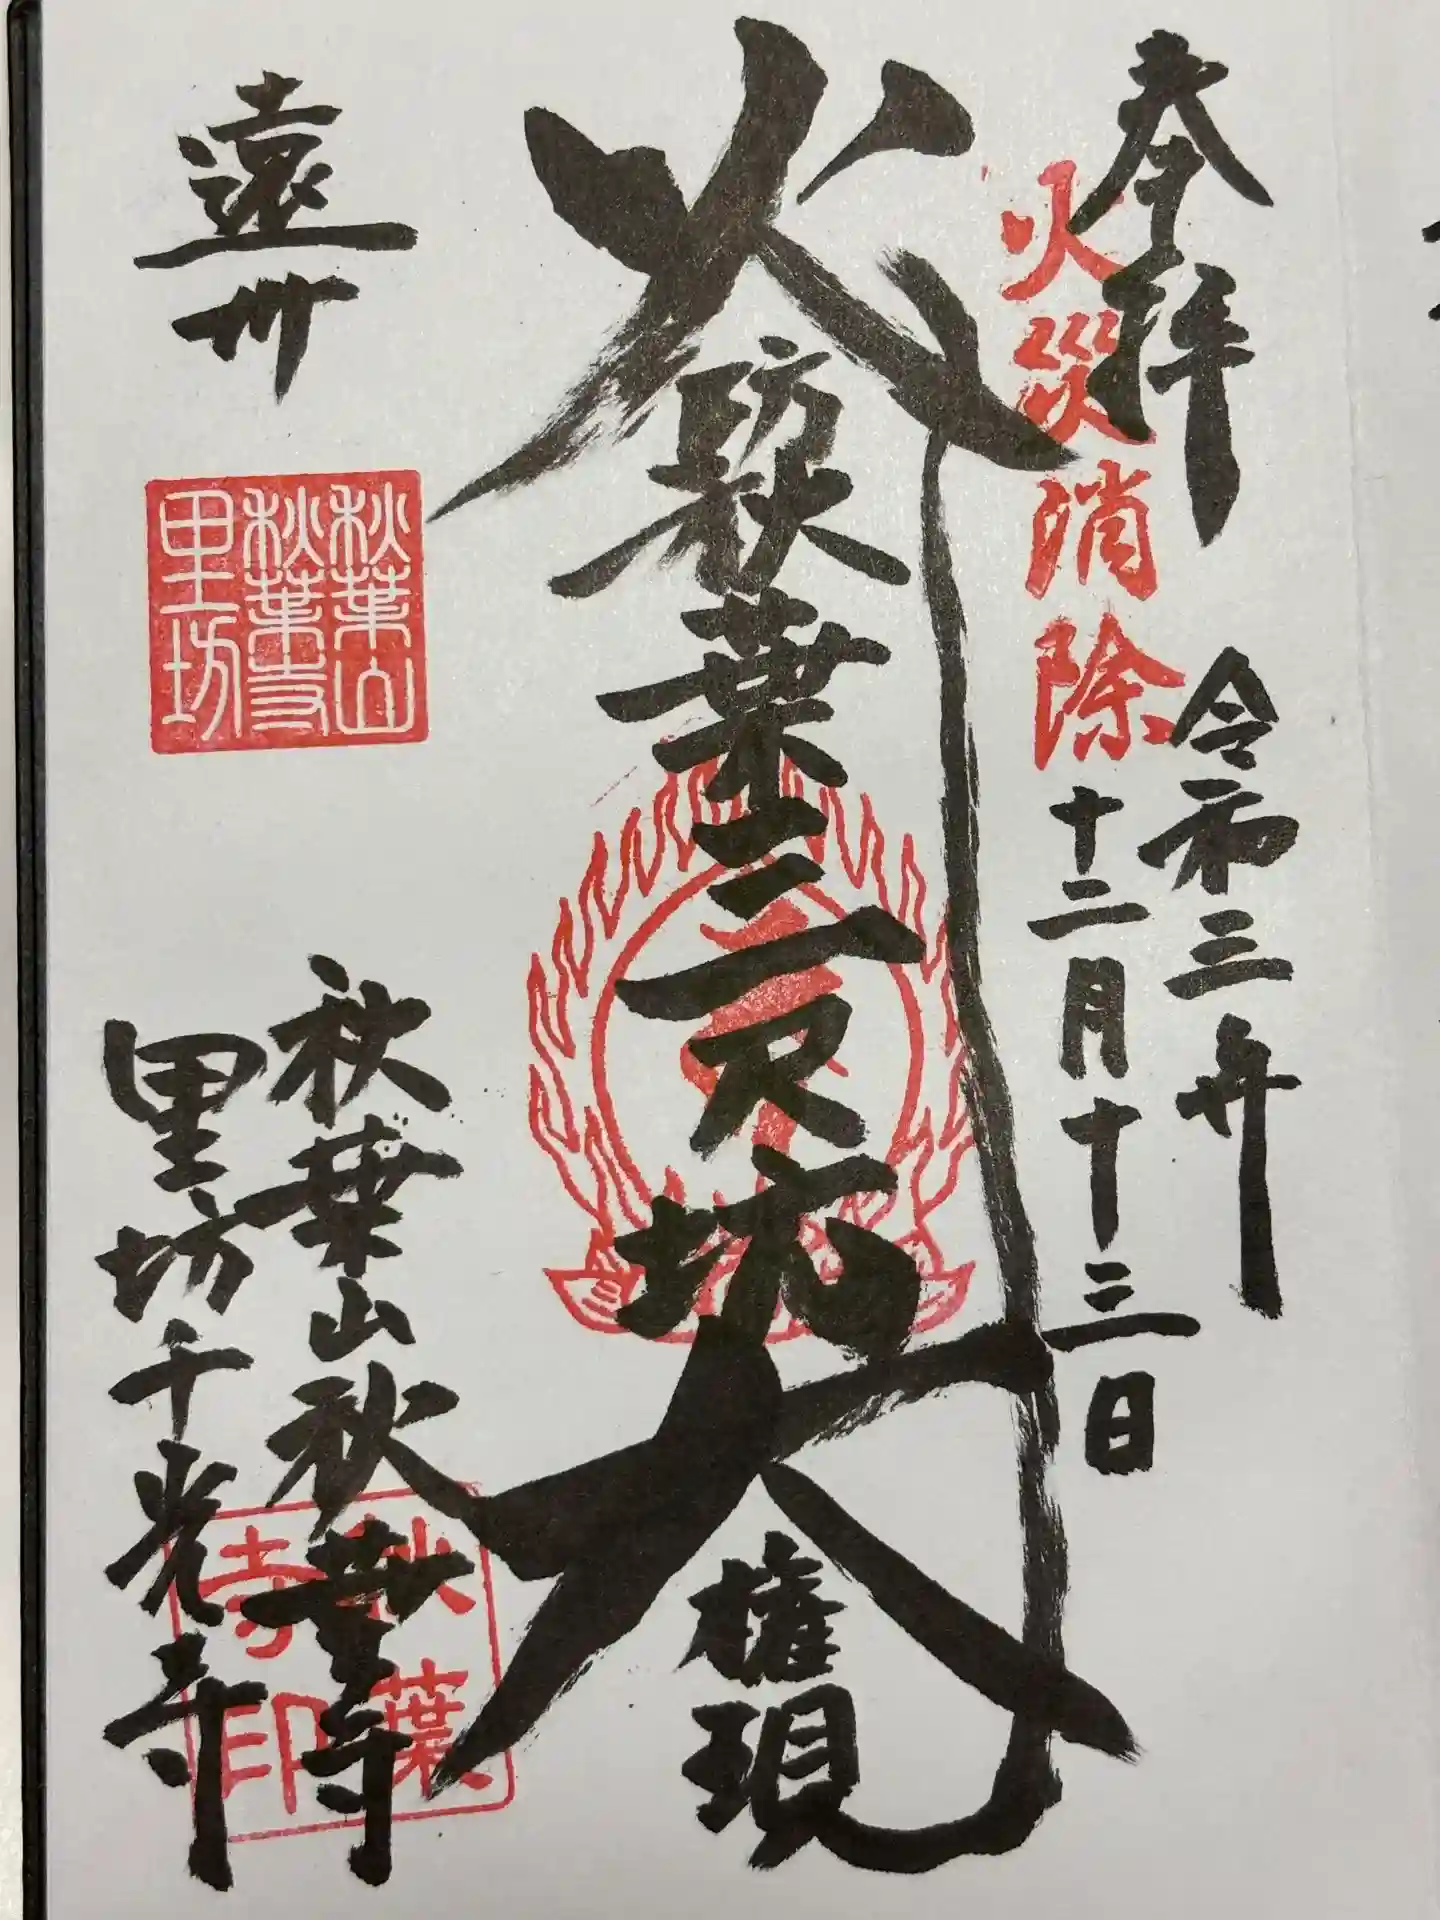 奉拝
火災消除
令和三年
十二月十三日
火防秋葉三尺坊大権現
遠州
秋葉山
秋葉寺
里坊
秋葉山秋葉寺
里坊千光寺
秋葉
寺印